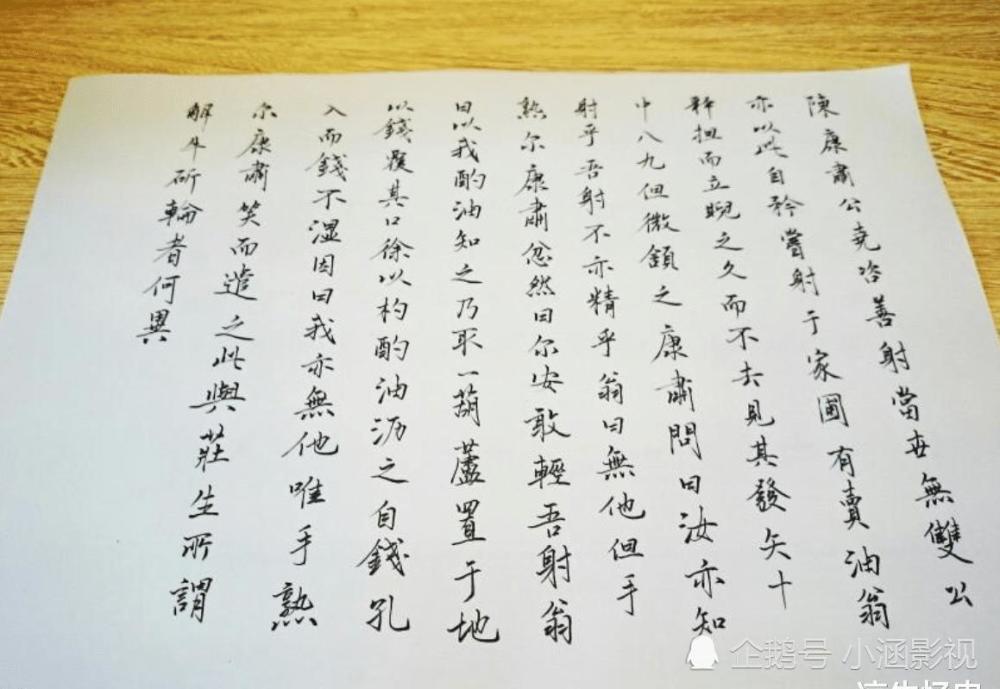 陳康肅公堯咨善射當世無雙公
亦以此自矜嘗射于家圃有賣油翁
釋担而立睨之久而不去見其發矢十
中八九但微頷之康肅問曰汝亦知
射乎吾射不亦精乎翁曰無他但手
熟尔康肅忿然曰尔安敢輕吾射翁
曰以我酌油知之乃取一葫蘆置于地
以錢覆其口徐以杓酌油沥之自錢孔
入而錢不湿因曰我亦無他唯手熟
尔康肅笑而遣之此與莊生所謂
解牛斫輪者何異
企鹅号 小涵影视